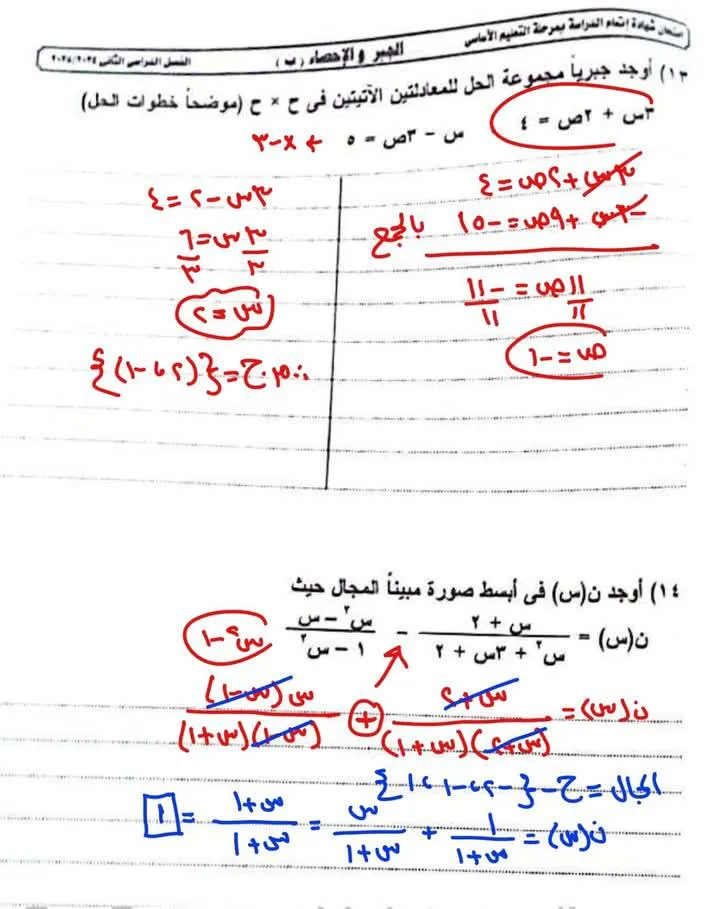 امتحان شهادة إتمام الدراسة بمرحلة التعليم الأساسى الجبر والإحصاء ( ب ) الفصل الدراسى الثانى ٢٠٢٥/٢٠٢٤
١٣) أوجد جبرياً مجموعة الحل للمعادلتين الآتيتين فى ح × ح (موضحاً خطوات الحل)
٣س + ٢ص = ٤
س - ٣ص = ٥ × -٣
٣س + ٢ص = ٤
-٣س + ٩ص = -١٥ بالجمع
١١ص/١١ = -١١/١١
ص = -١
٣س - ٢ = ٤
٣س/٣ = ٦/٣
س = ٢
∴ م.ح = {(٢، -١)}
١٤) أوجد ن(س) فى أبسط صورة مبيناً المجال حيث
ن(س) = (س + ٢)/(س٢ + ٣س + ٢) - (س٢ - س)/(١ - س٢) س٢ - ١
ن(س) = (س+٢)/((س+٢)(س+١)) + س(س-١)/((س-١)(س+١))
المجال = ح - {-٢، -١، ١}
ن(س) = ١/(س+١) + س/(س+١) = (س+١)/(س+١) = ١